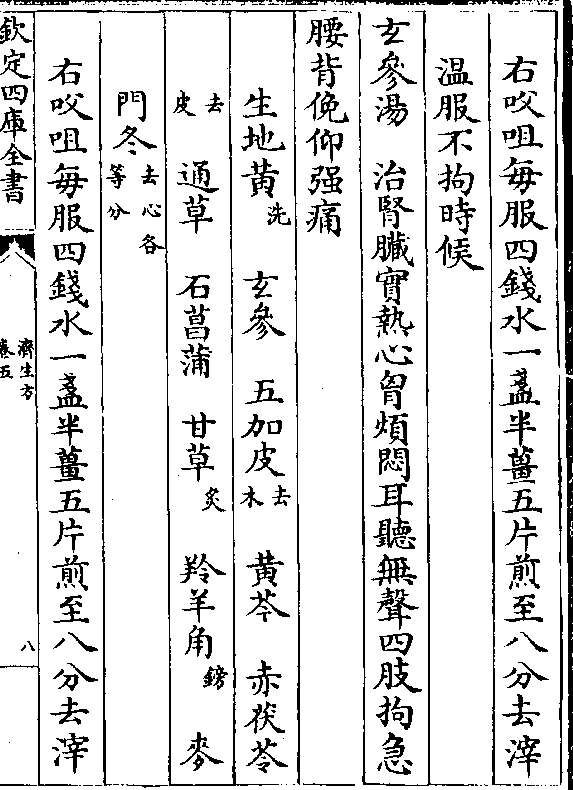 右㕮咀每服四錢水一盞半薑五片煎至八分去滓
温服不拘時候
玄參湯　治腎臟實熱心胷煩悶耳聽無聲四肢拘急
腰背俛仰强痛
生地黄洗　玄參　五加皮去木　黄芩　赤茯苓
去皮　通草　石菖蒲　甘草炙　羚羊角鎊　麥
門冬去心各等分
右㕮咀每服四錢水一盞半薑五片煎至八分去滓
欽定四庫全書
濟生方
卷五
八